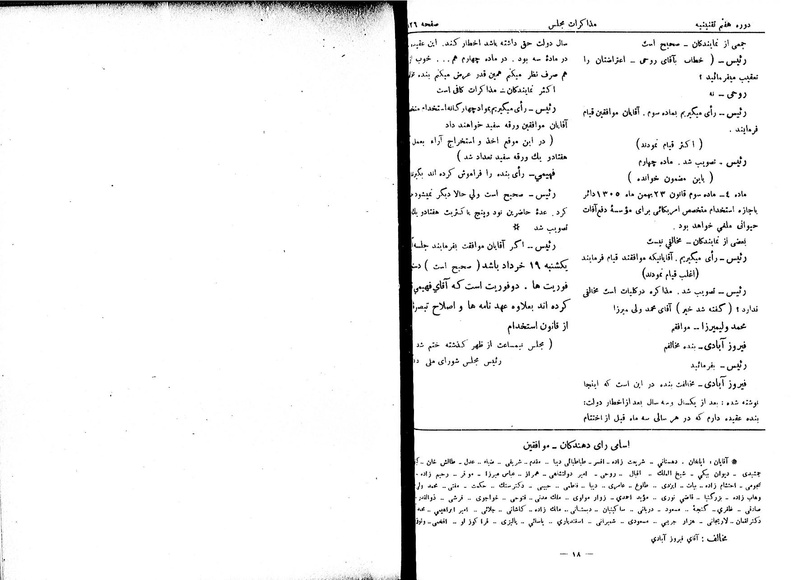 دوره هفتم تقنینیه
مذاکرات مجلس
صفحه ۱۲۶
جمعی از نمایندگان ـ صحیح است
رئیس ـ ( خطاب بآقای روحی ـ اعتراضتان را
تعقیب میفرمائید ؟
روحی ـ نه
رئیس ـ رأی میگیریم بماده سوم . آقایان موافقین قیام
فرمایند .
( اکثر قیام نمودند )
رئیس ـ تصویب شد . ماده چهارم
( باین مضمون خوانده )
ماده ٤ ـ ماده سوم قانون ۲۳ بهمن ماه ۱۳۰۵ دائر
باجازه استخدام متخصص امریکائی برای مؤسسهٔ دفع آفات
حیوانی ملغی خواهد بود .
بعضی از نمایندگان ـ مخالفی نیست
رئیس ـ رأی میگیریم . آقایانیکه موافقند قیام فرمایند
(اغلب قیام نمودند)
رئیس ـ تصویب شد . مذاکره در کلیات است مخالفی
ندارد ؟ ( گفته شد خیر ) آقای محمد ولی میرزا
محمد ولیمیرزا ـ موافقم
فیروز آبادی ـ بنده مخالفم
رئیس ـ بفرمائید
فیروز آبادی ـ مخالفت بنده در این است که اینجا
نوشته شده : بعد از یکسال و سه سال بعد از اخطار دولت:
بنده عقیده دارم که در هر سالی سه ماه قبل از اختتام
سال دولت حق داشته باشد اخطار کند . این
در مادهٔ سه بود . در ماده چهارم هم ... خوب از
هم صرف نظر میکنم همین قدر عرض میکنم بنده
اکثر نمایندگان ـ مذاکرات کافی است
رئیس ـ رأی میگیریم بمواد چهارگانه استخدام
آقایان موافقین ورقه سفید خواهند داد
( در این موقع اخذ و استخراج آراء بعمل
هفتاد و یک ورقه سفید تعداد شد )
فهیمی ـ رأی بنده را فراموش کرده اند
رئیس ـ صحیح است ولی حالا دیگر نمیشود
کرد . عدهٔ حاضرین نود و پنج با کثریت هفتاد و یک
تصویب شد *
رئیس ـ اگر آقایان موافقت بفرمایند جلسه
یکشنبه ۱۹ خرداد باشد ( صحیح است )
فوریت ها . دو فوریت است که آقای فهیمی
کرده اند بعلاوه عهد نامه ها و اصلاح تبصره
از قانون استخدام
( مجلس نیمساعت از ظهر گذشته ختم شد
رئیس مجلس شورای ملی
اسامی رأی دهندگان ـ موافقین
* آقایان : ایلخان ـ دهستانی ـ شریعت زاده ـ افسر ـ طباطبائی دیبا ـ مقدم ـ شریفی ـ ضیاء ـ عدل ـ طالش خان ـ
جمشیدی ـ دیوان بیگی ـ شیخ الملک ـ اقبال ـ روحی ـ امیر دولتشاهی ـ همراز ـ عباس میرزا ـ موقر ـ رحیم زاده ـ
نجومی ـ احتشام زاده ـ بیات ـ ایزدی ـ طلوع ـ عامری ـ دیبا ـ فاطمی ـ حبیبی ـ دکتر سنگ ـ حکمت ـ مفتی ـ محمد ولی
وهاب زاده ـ بزرگنیا ـ قاضی نوری ـ مؤید احمدی ـ زوار مولوی ـ ملک مدنی ـ فتوحی ـ خواجوی ـ فرشی ـ ذوالقدر
صادقی ـ ظفری ـ گنجهٔ ـ مسعود ـ دربانی ـ ساگینیان ـ دستی ـ مالک زاده ـ کاشانی ـ جلائی ـ امیر ابراهیمی ـ
دکتر لقمان ـ لاریجانی ـ هزار جریبی ـ مسعودی ـ شمیرانی ـ اسفندیاری ـ یاسائی ـ پالیزی ـ قراگوزلو ـ افخمی ـ وثوق
مخالف : آقای فیروز آبادی
ـ ۱۸ ـ